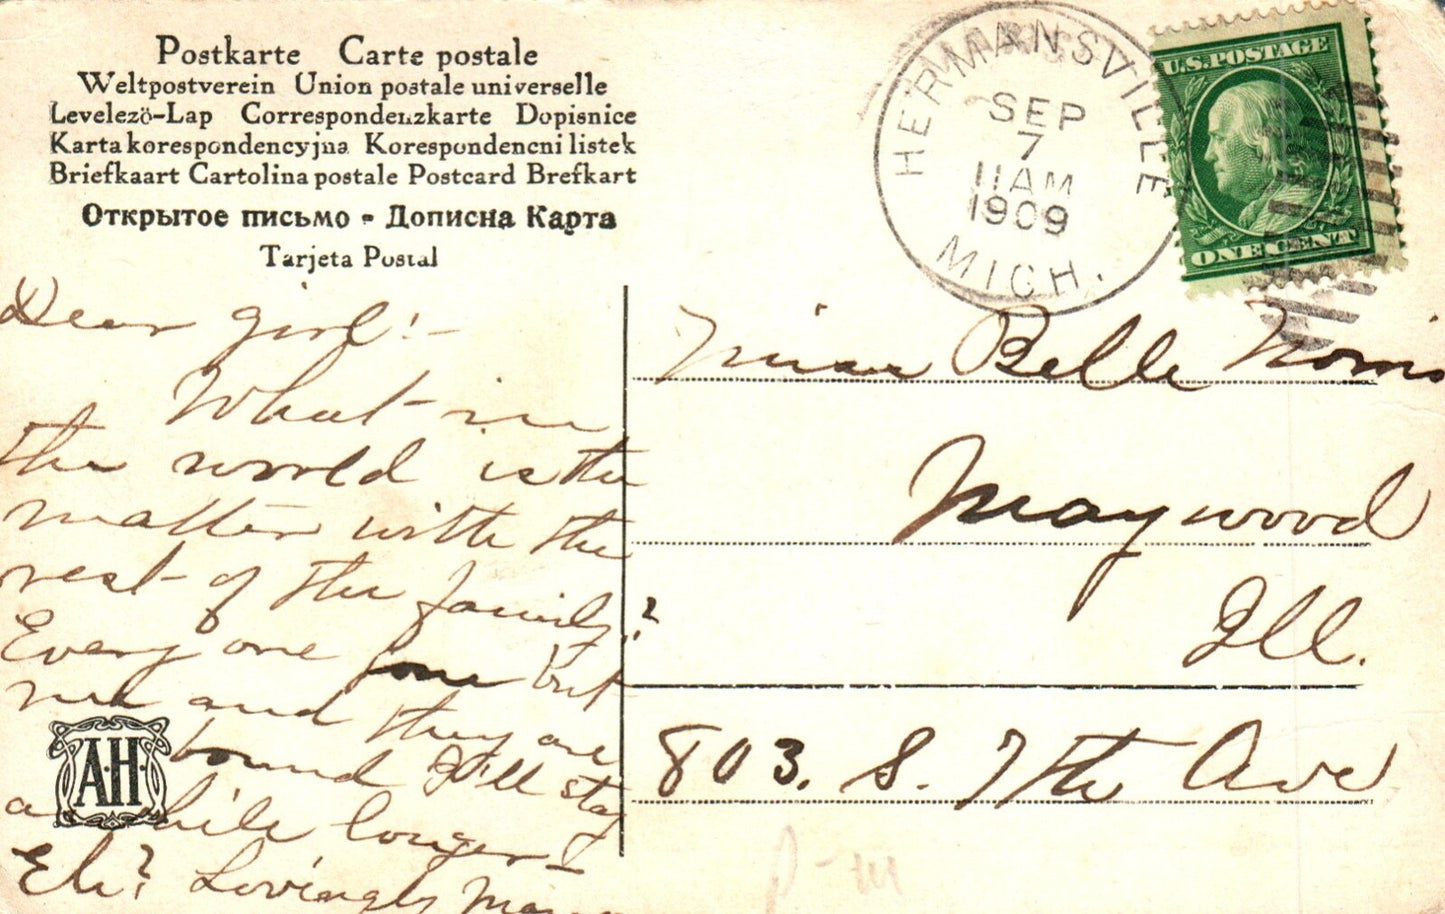 Postkarte Carte postale
Weltpostverein Union postale universelle
Levelezö-Lap Correspondenzkarte Dopisnice
Karta korespondencyjna Korespondencni listek
Briefkaart Cartolina postale Postcard Brefkart
Открытое письмо - Дописна Карта
Tarjeta Postal
HERMANSVILLE
SEP
7
11 AM
1909
MICH.
U.S. POSTAGE
ONE CENT
Dear girl! -
What in
the world is the
matter with the
rest of the family?
Every one gone but
me and they are
bound I'll stay
a while longer -
Eh? Lovingly
A.H.
Miss Belle Norris
Maywood
Ill.
803. S. 7th Ave